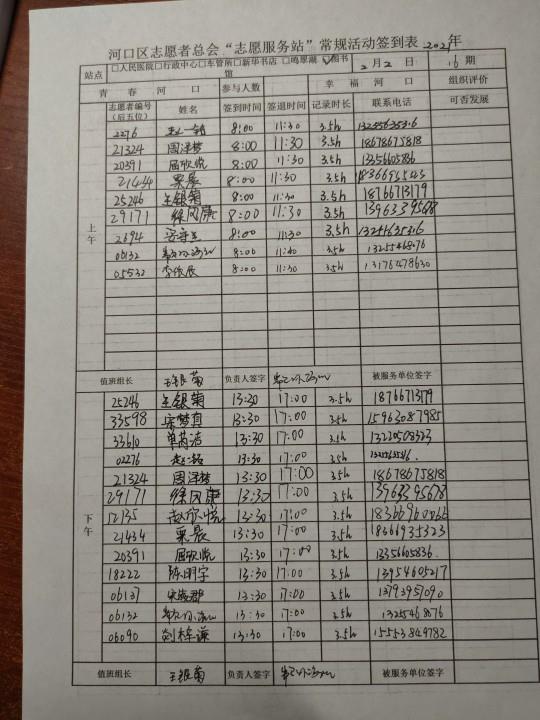 河口区志愿者总会“志愿服务站”常规活动签到表 2021年
站点 □人民医院□行政中心□车管所□新华书店 □鸣翠湖 ☑图书馆 2月2日 16期 组织评价
青春河口 参与人数 幸福河口 可否发展
志愿者编号（后五位） 姓名 签到时间 签退时间 记录时长 联系电话
上午
2276 8:00 11:30 3.5h
21324 周泽梦 8:00 11:30 3.5h 18678675818
20391 屈欣悦 8:00 11:30 3.5h 13356605836
21434 栗晨 8:00 11:30 3.5h
25246 王银菊 8:00 11:30 3.5h 18766713179
29171 徐风康 8:00 11:30 3.5h 13963395678
2694 8:00 11:30 3.5h
06132 8:00 11:30 3.5h 13255468076
05532 8:00 11:30 3.5h 13176478630
值班组长 王银菊 负责人签字 被服务单位签字
下午
25246 王银菊 13:30 17:00 3.5h 18766713179
33598 宋梦真 13:30 17:00 3.5h 15963087985
33610 单芮洁 13:30 17:00 3.5h 13220508323
02276 13:30 17:00 3.5h
21324 周泽梦 13:30 17:00 3.5h 18678675818
29171 徐风康 13:30 17:00 3.5h 13963395678
12135 赵欣悦 13:30 17:00 3.5h
21434 栗晨 13:30 17:00 3.5h 18666935323
20391 屈欣悦 13:30 17:00 3.5h 13356605836
18222 陈明宇 13:30 17:00 3.5h 13954605217
06137 13:30 17:00 3.5h 13793957090
06132 13:30 17:00 3.5h 13255468076
06090 刘栋谦 13:30 17:00 3.5h 15553849782
值班组长 王银菊 负责人签字 被服务单位签字